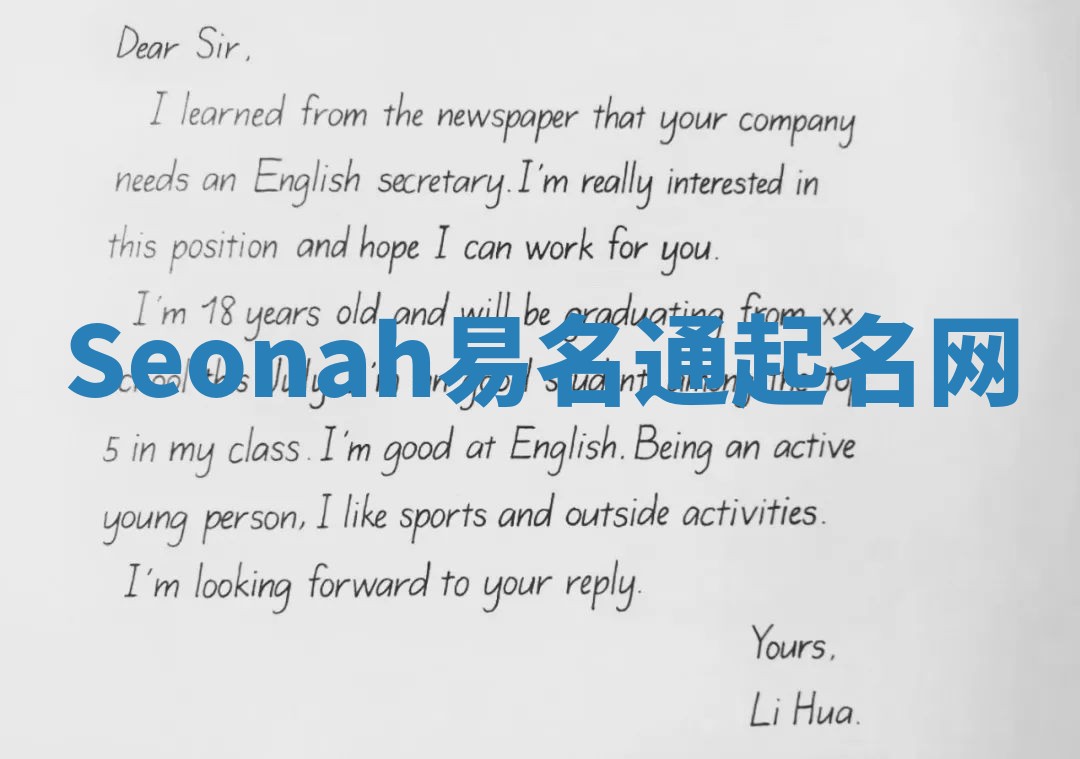 Dear Sir,
I learned from the newspaper that your company
needs an English secretary. I'm really interested in
this position and hope I can work for you.
I'm 18 years old and will be graduating from xx
Seonah易名通起名网
school this July. I'm
5 in my class. I'm good at English. Being an active
young person, I like sports and outside activities.
I'm looking forward to your reply.
Yours,
Li Hua.